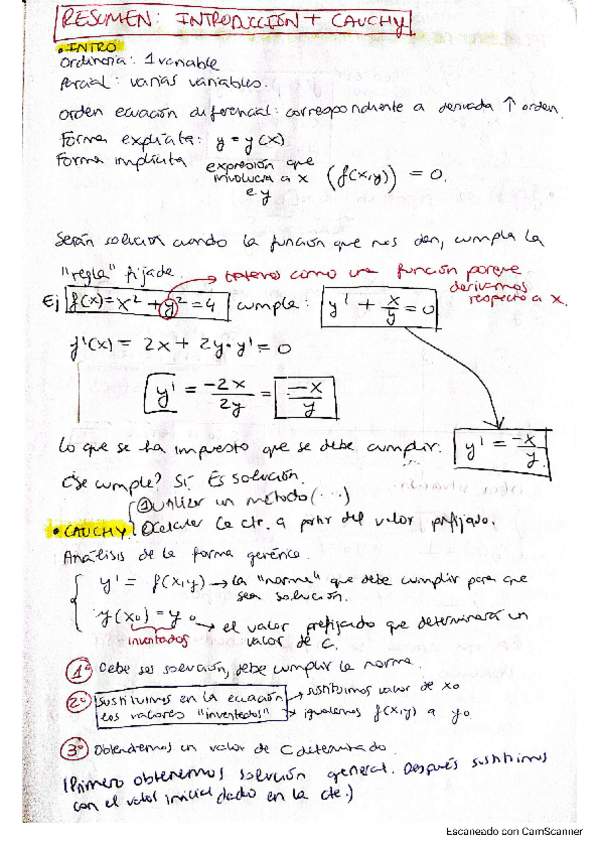 RESUMEN: INTRODUCCIÓN + CAUCHY
• INTRO
Ordinaria: 1 variable
Parcial: varias variables.
Orden ecuación diferencial: correspondiente a derivada ↑ orden.
Forma explícita: y = y(x)
Forma implícita expresión que involucra a x e y (f(x,y)) = 0.
Serán solución cuando la función que nos den, cumpla la
"regla" fijada.
tratamos como una función porque derivamos respecto a x.
Ej f(x) = x² + y² = 4 cumple: y' + x/y = 0
f'(x) = 2x + 2y·y' = 0
y' = -2x/2y = -x/y
Lo que se ha impuesto que se debe cumplir. y' = -x/y.
¿Se cumple? Sí. Es solución.
① Utilizar un método (...)
• CAUCHY ② Calcular la cte. a partir del valor prefijado.
Análisis de la forma genérica.
y' = f(x,y) → la "norma" que debe cumplir para que sea solución.
y(x₀) = y₀ → el valor prefijado que determinará un valor de C.
inventados
1º Debe ser solución, debe cumplir la norma.
2º Sustituimos en la ecuación los valores "inventados" → sustituimos valor de x₀
→ igualamos f(x,y) a y₀
3º Obtendremos un valor de C determinado.
(Primero obtenemos solución general. Después sustituimos
con el valor inicial dado en la cte.)
Escaneado con CamScanner